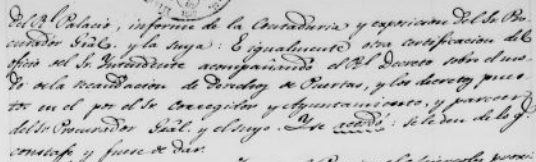 del Rl. Palacio, informe de la Contaduria y exposicion del Sr. Pro
curador Gral. y la suya: E igualmente otra certificacion del
oficio del Sr. Yntendente acompañando el Rl. Decreto sobre el mo
do de la recaudacion de derechos de Puertas, y los decretos pues
tos en el por el Sr. Corregidor y Ayuntamiento, y parecer
del Sr. Procurador Gral. y el suyo. Y se acordó: se le den de lo q.
constase y fuere de dar.